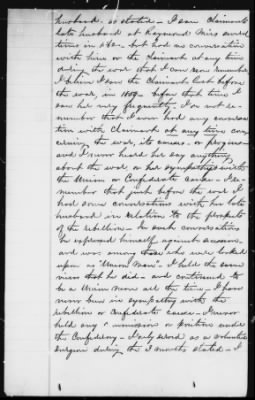 husband. so stated – I saw Claimant's
late husband at Raymond Miss several
times in 1862. but had no conversation
with him or the claimant at any time
during the war that I can now remember
I believe I saw the Claimant last before
the war, in 1859 – before that time I
saw her very frequently. I do not re-
member that I ever had any conversa
tion with Claimant at any time con
cerning the war, its causes or progress
and I never heard her say anything
about the war, or her sympathies with
the Union or Confederate cause – I re-
member that just before the war I
had some conversations with her late
husband in relation to the prospects
of the rebellion – In such conversations
he expressed himself against secession.
and was among those who were looked
upon as "Union Men". I held the same
views that he did – and continued to
be a Union Man all the time – I have
never been in sympathy with the
rebellion or Confederate cause – I never
held any commission or position under
the Confederacy – I only acted as a volunteer
Surgeon during the 2 months stated – I